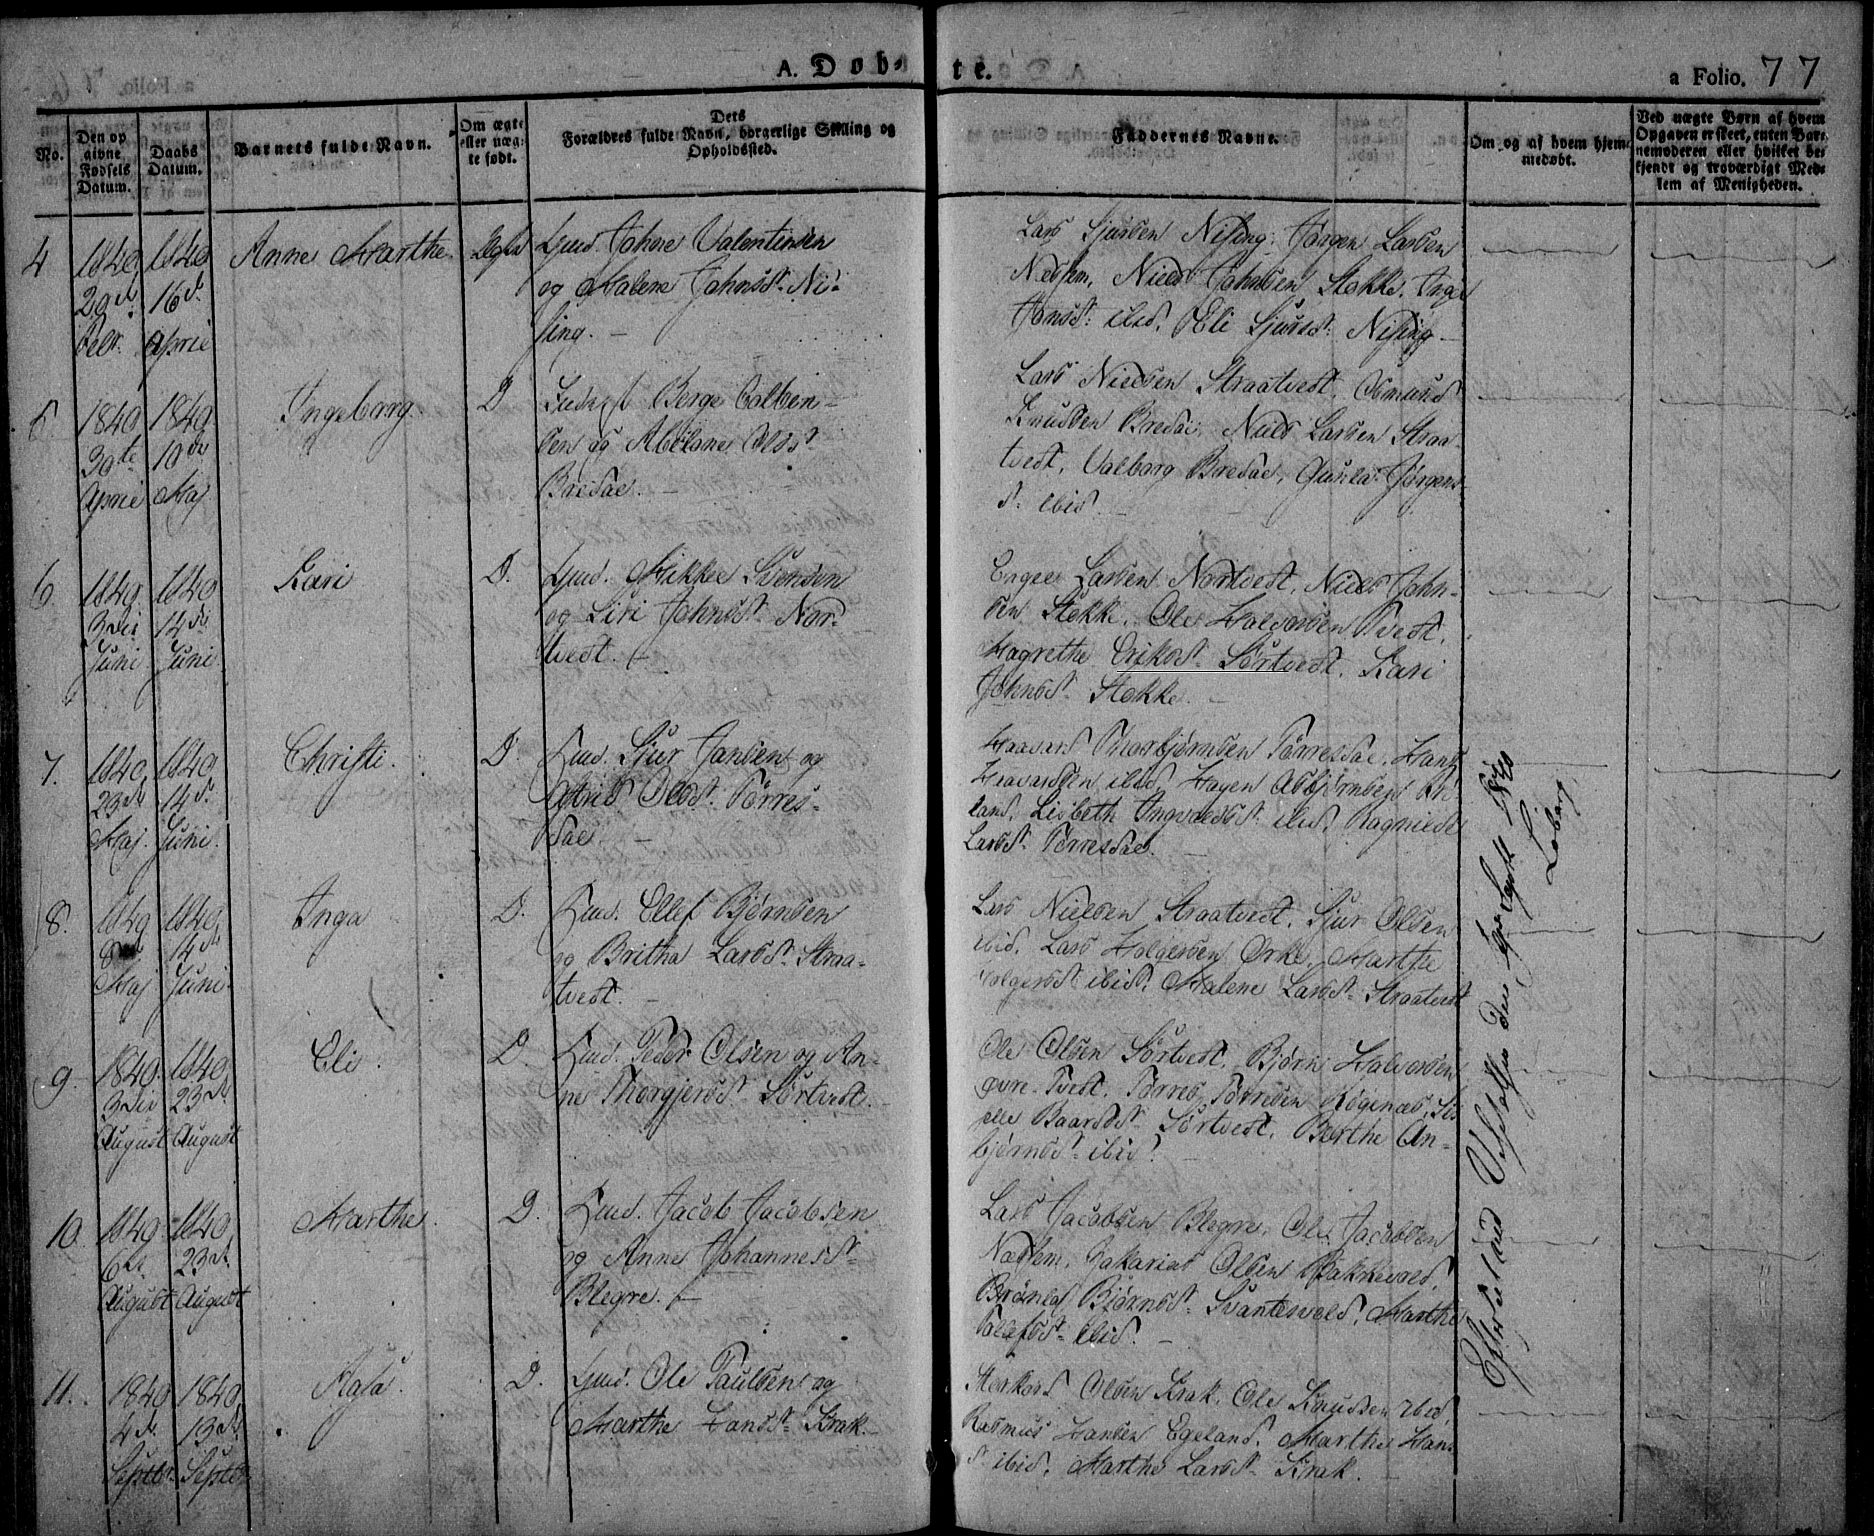 A. Døb-
te.
a Folio. 77
No.
Den op
givne
Fødsels
Datum.
Daabs
Datum.
Barnets fulde Navn.
Om ægte
eller uæg-
te født.
Dets
Forældres fulde Navn, borgerlige Stilling og
Opholdssted.
Faddernes Navne.
Om og af hvem hjem-
medøbt.
Ved uægte Børn af hvem
Opgaven er skeet, enten Bar-
nemoderen eller hvilket be-
kjendt og troværdigt Med-
lem af Menigheden.
4
1840
29de
Febr.
1840
16d.
April
Anne Marthe.
Ægte
Johne Valentinsen
og Malene Johnsd. Ni-
sing.
Lars Sjursen Nising, Jørgen Larsen
Næshem, Niels Johnsen Stokke, Inge
Jonsd: ibid, Eli Sjursd: Nising
5.
1840
30te
April
1840
10de
Maj
Ingeborg.
D
Berge Colben-
sen og Abelone Olsd.
Bredal.
Lars Nielsen Straatvedt, Osmund
Knudsen Bredal, Niels Larsen Straa-
tvedt, Valborg Bredal, Gunla Jørgens-
d. ibid.
6.
1840
3die
Juni
1840
14de
Juni
Kari
D.
Mikkel Svendsen
og Siri Johnsd. Nor-
tvedt.
Engel Larsen Nortvedt, Niels John-
sen Stokke, Ole Halvorsen Tvedt,
Magrethe Eriksd. Sørtvedt, Kari
Johnsd. Stokke.
7.
1840
23de
Maj.
1840
14d.
Juni.
Christi.
D.
Sjur Jansen og
Astrid Olsd. Tørres-
dal
Haavard Thorbjørnsen Tørresdal, Hans
Haavardsen ibid, Hagen Asbjørnsen
land, Lisbeth Ingvaldsd. ibid, Ragnilde
Larsd. Tørresdal.
8.
1840
Maj
1840
14de
Juni.
Inga
D.
Ellef Bjørnsen
og Britha Larsd. Straa-
tvedt.
Lars Nielsen Straatvedt, Sjur Olsen
ibid, Lars Holgersen Ørke, Marthe
Holgersd. ibid, Malene Larsd. Straatvedt
9.
1840.
3die
August
1840
23de
August
Eli.
D.
Peder Olsen og An-
ne Thorgjersd. Sørtvedt.
Ole Olsen Sørtvedt, Bjørn Halvorsen
øvre Tvedt, Tørres Tørresen Røgenæs, Si-
ælle Baardsd. Sørtvedt, Berthe An-
bjørnsd. ibid.
10.
1840
6te
August
1840
23de
August
Marthe.
D.
Jacob Jacobsen
og Anne Johannesd.
Blegre.
Lars Jacobsen Blegre, Ole Jacobsen
Næshem, Zakarias Olsen Bakkevold,
Brønla Bjørnsd. Svantesvold, Marthe
Tolefsd. ibid.
11.
1840
4de
Septbr.
1840
13de
Septbr.
Aasa.
D.
Ole Paulsen og
Marthe Hansd. Krak.
Sterkord Olsen Krak, Ole Knudsen ibid,
Rasmus Hansen Egeland, Marthe Han-
d. ibid, Marthe Larsd. Krak.
Efterseet ved Visitatsen den Septbr 1840